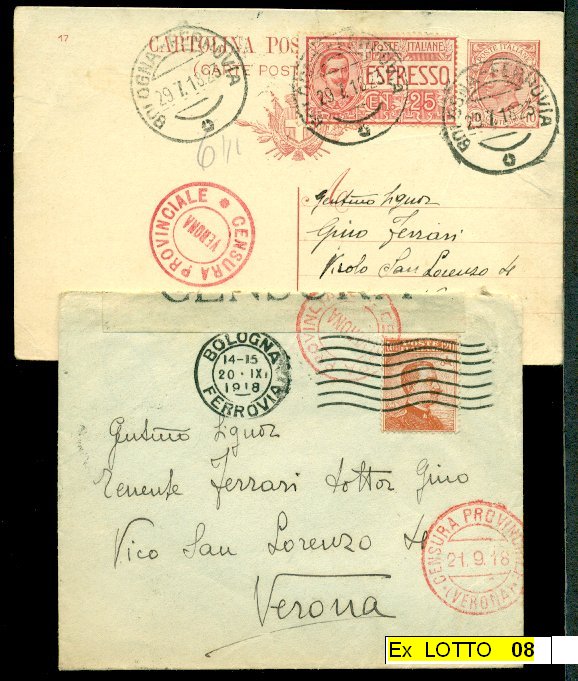 17
CARTOLINA POS
(CARTE POST
POSTE ITALIANE
ESPRESSO
CENT. 25
POSTE ITALIANE
BOLOGNA FERROVIA
29.7.18.23
BOLOGNA FERROVIA
29.7.18.23
6
CENSURA PROVINCIALE
VERONA
Gentmo Signor
Gino Ferrari
Vicolo San Lorenzo 4
CENSURA
BOLOGNA
14-15
20·IX
1918
FERROVIA
POSTE
Gentmo Signor
Tenente Ferrari Dottor Gino
Vico San Lorenzo 4
Verona
CENSURA PROVINCIALE
21.9.18
(VERONA)
Ex LOTTO 08